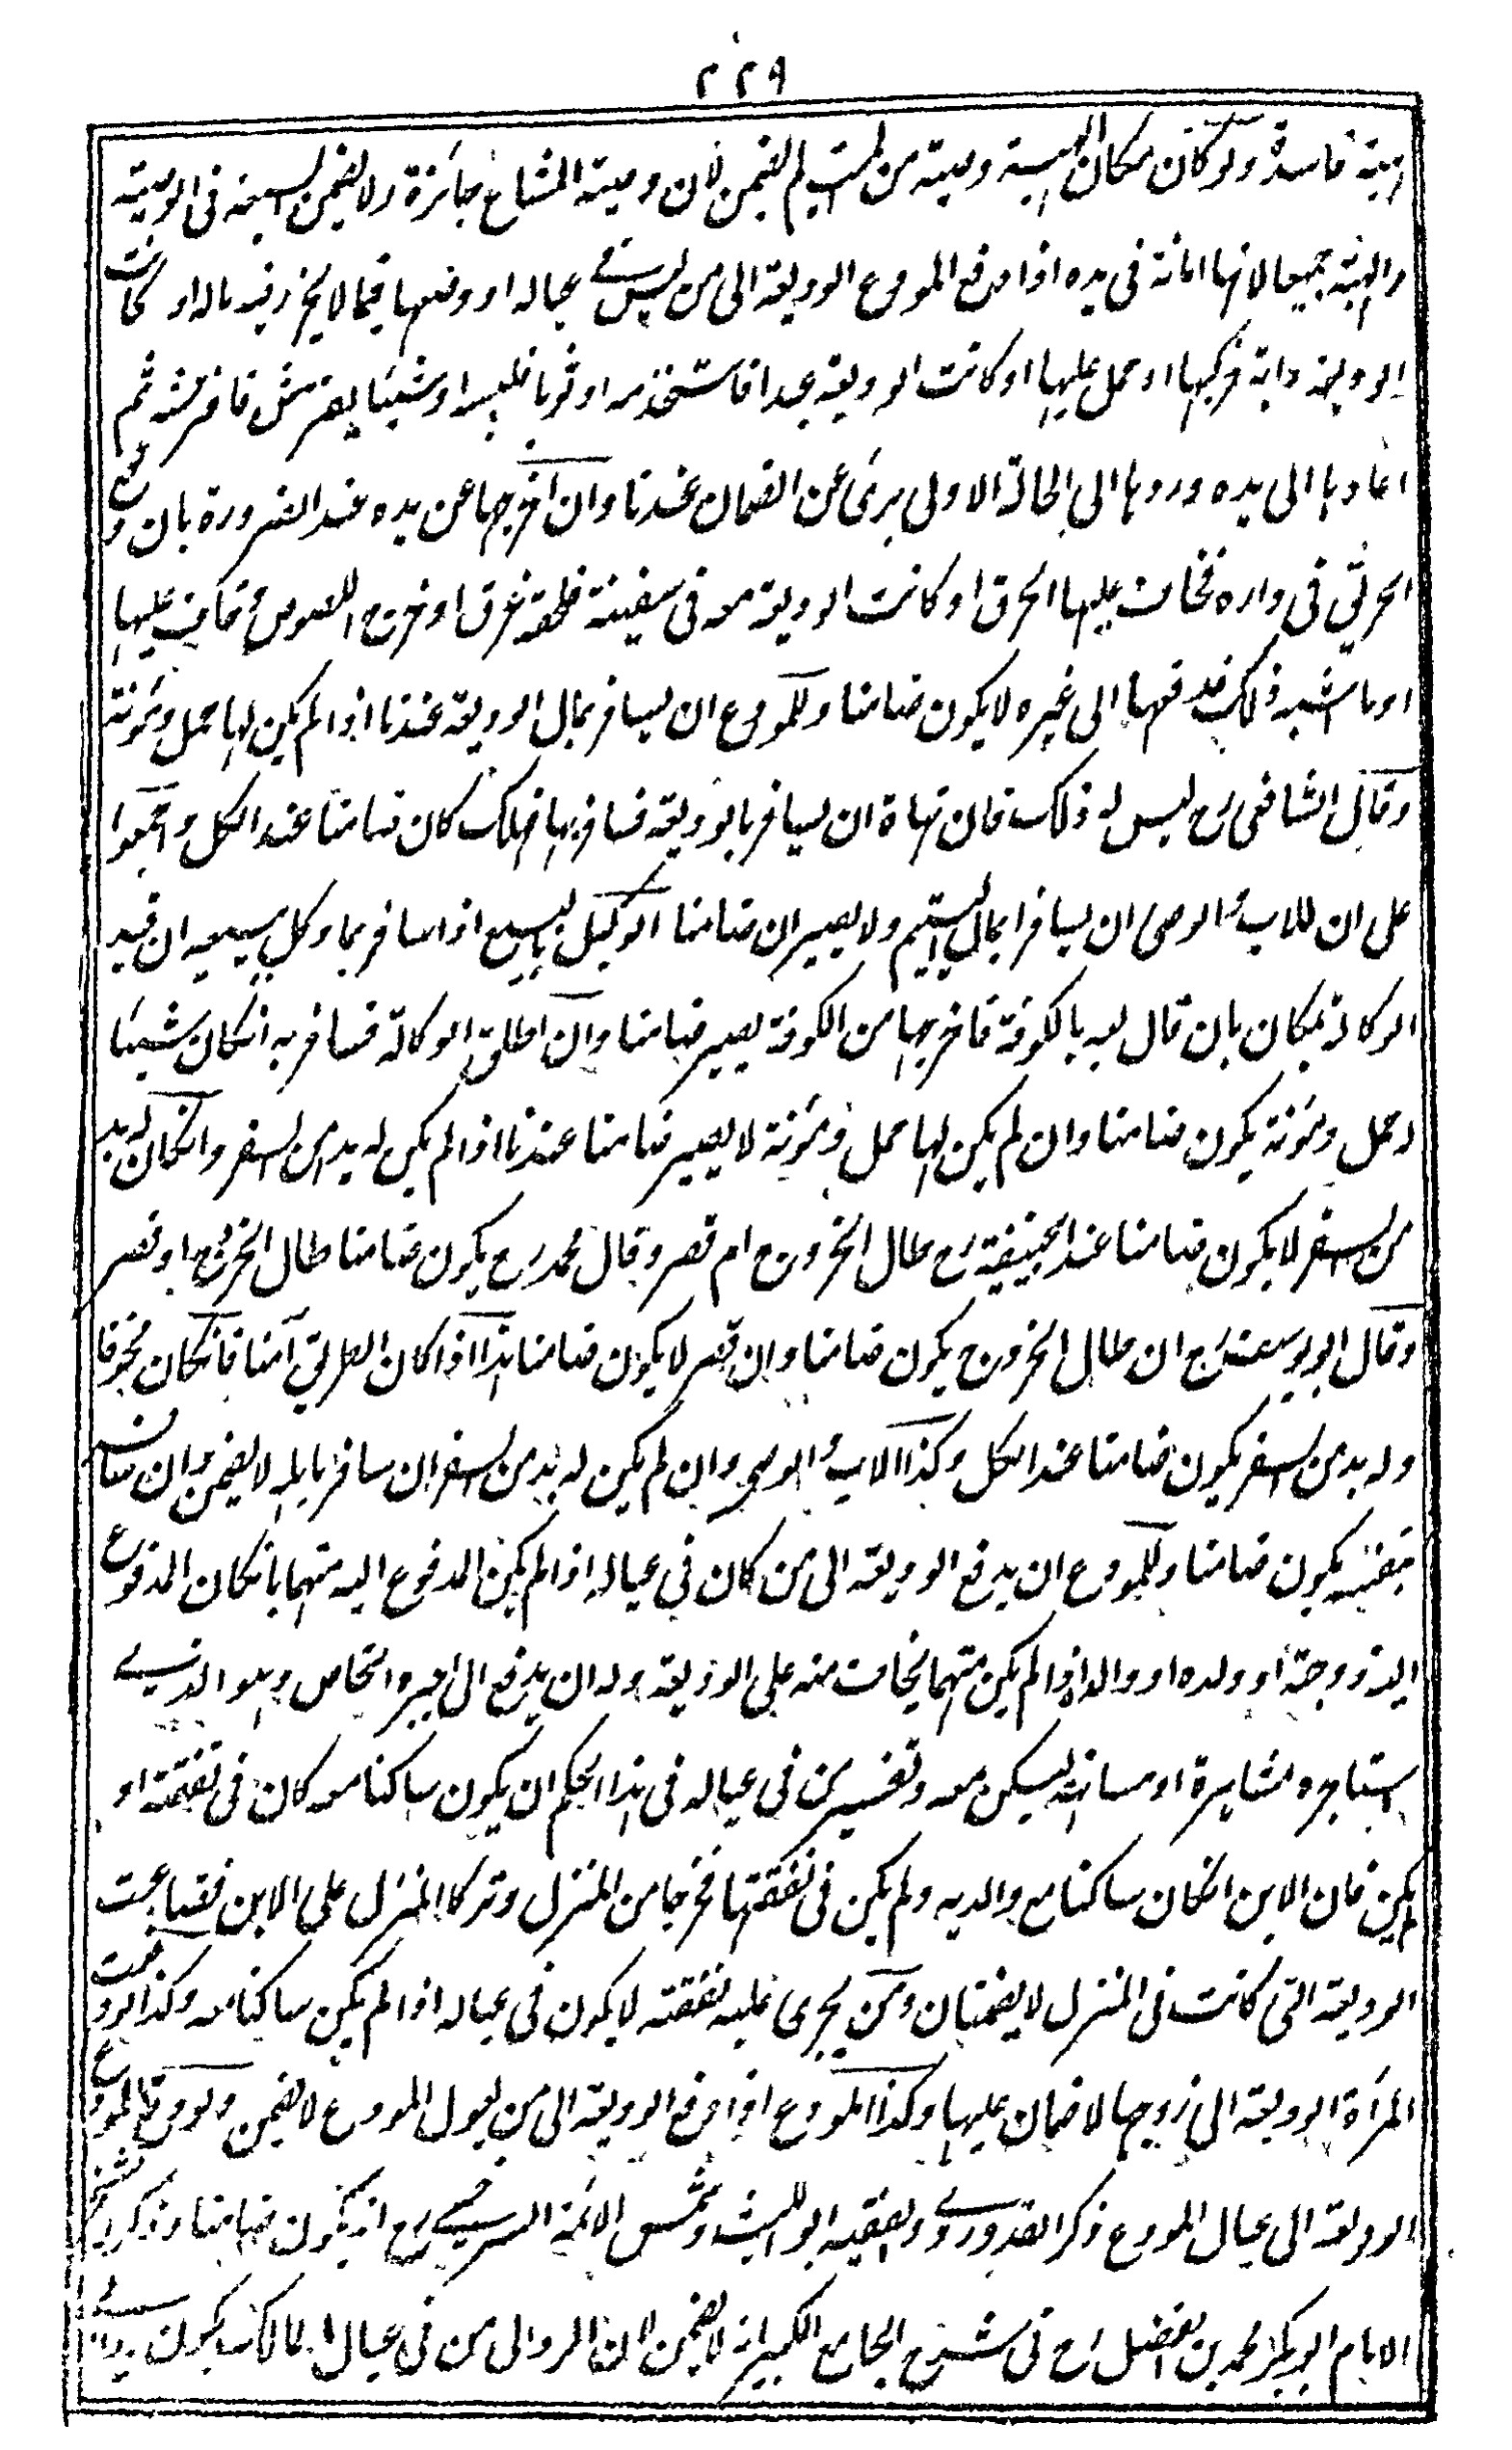 ٢٢٩
الهبة فاسدة ولو كان مكان الهبة وصية من الميت لم يضمن لان وصية المشاع جائزة ولا يضمن السبعة فى الوصية
والهبة جميعا لانها امانة فى يده اذا دفع المودع الوديعة الى من ليس فے عياله او وضعها فيما لا يحرز فيه ماله او كانت
الوديعة دابة فركبها او حمل عليها او كانت الوديعة عبدا فاستخدمه او ثوبا فلبسه او شيئا يفترش فافترشه ثم
اعادها الى يده وردها الى الحالة الاولى برئ عن الضمان عندنا وان اخرجها عن يده عند الضرورة بان وقع
الحريق فى داره فخاف عليها الحرق او كانت الوديعة معه فى سفينة فلحقه غرق او خرج اللصوص وخاف عليها
او ما اشبه ذلك فدفعها الى غيره لا يكون ضامنا وللمودع ان يسافر بمال الوديعة عندنا اذا لم يكن لها حمل ومؤنة
وقال الشافعى رح ليس له ذلك فان نهاه ان يسافر بالوديعة فسافر بها فهلك كان ضامنا عند الكل واجمعوا
على ان للاب والوصى ان يسافرا بمال اليتيم ولا يصيران ضامنا الوكيل بالبيع اذا سافر بما وكل ببيعه ان قيد
الوكالة بمكان بان قال بعه بالكوفة فاخرجها من الكوفة يصير ضامنا وان اطلق الوكالة فسافر به انكان شيئا
له حمل ومؤنة يكون ضامنا وان لم يكن لها حمل ومؤنة لا يصير ضامنا عندنا اذا لم يكن له بد من السفر وانكان له بد
من السفر لا يكون ضامنا عند ابيحنيفة رح طال الخروج ام قصر وقال محمد رح يكون ضامنا طال الخروج او قصر
وقال ابو يوسف رح ان طال الخروج يكون ضامنا وان قصر لا يكون ضامنا هذا اذا كان الطريق آمنا فانكان مخوفا
وله بد من السفر يكون ضامنا عند الكل وكذا الاب والوصى وان لم يكن له بد من السفر ان سافر باهله لا يضمن وان سافر
بنفسه يكون ضامنا وللمودع ان يدفع الوديعة الى من كان فى عياله اذا لم يكن المدفوع اليه متهما بانكان المدفوع
اليه زوجته او ولده او والداه اذا لم يكن متهما يخاف منه على الوديعة وله ان يدفع الى اجيره الخاص وهو الذے
استاجره مشاهرة او مسانهة ليسكن معه وتفسير من فى عياله فى هذا الحكم ان يكون ساكنا معه كان فى نفقته او
لم يكن فان الابن انكان ساكنا مع والديه ولم يكن فى نفقتهما فخرجا من المنزل وتركا المنزل على الابن فضاعت
الوديعة التى كانت فى المنزل لا يضمنان ومن يجرى عليه نفقته لا يكون فى عياله اذا لم يكن ساكنا معه وكذا لو دفعت
المرأة الوديعة الى زوجها لا ضمان عليها وكذا المودع اذا دفع الوديعة الى من يعول المودع لا يضمن ولو دفع المودع
الوديعة الى عيال المودع ذكر القدورے والفقيه ابو الليث وشمس الائمة السرخسے رح انه يكون ضامنا وذكر الشيخ
الامام ابو بكر محمد بن الفضل رح فى شرح الجامع الكبير انه لا يضمن لان الرد الى من فى عيال المالك يكون رد